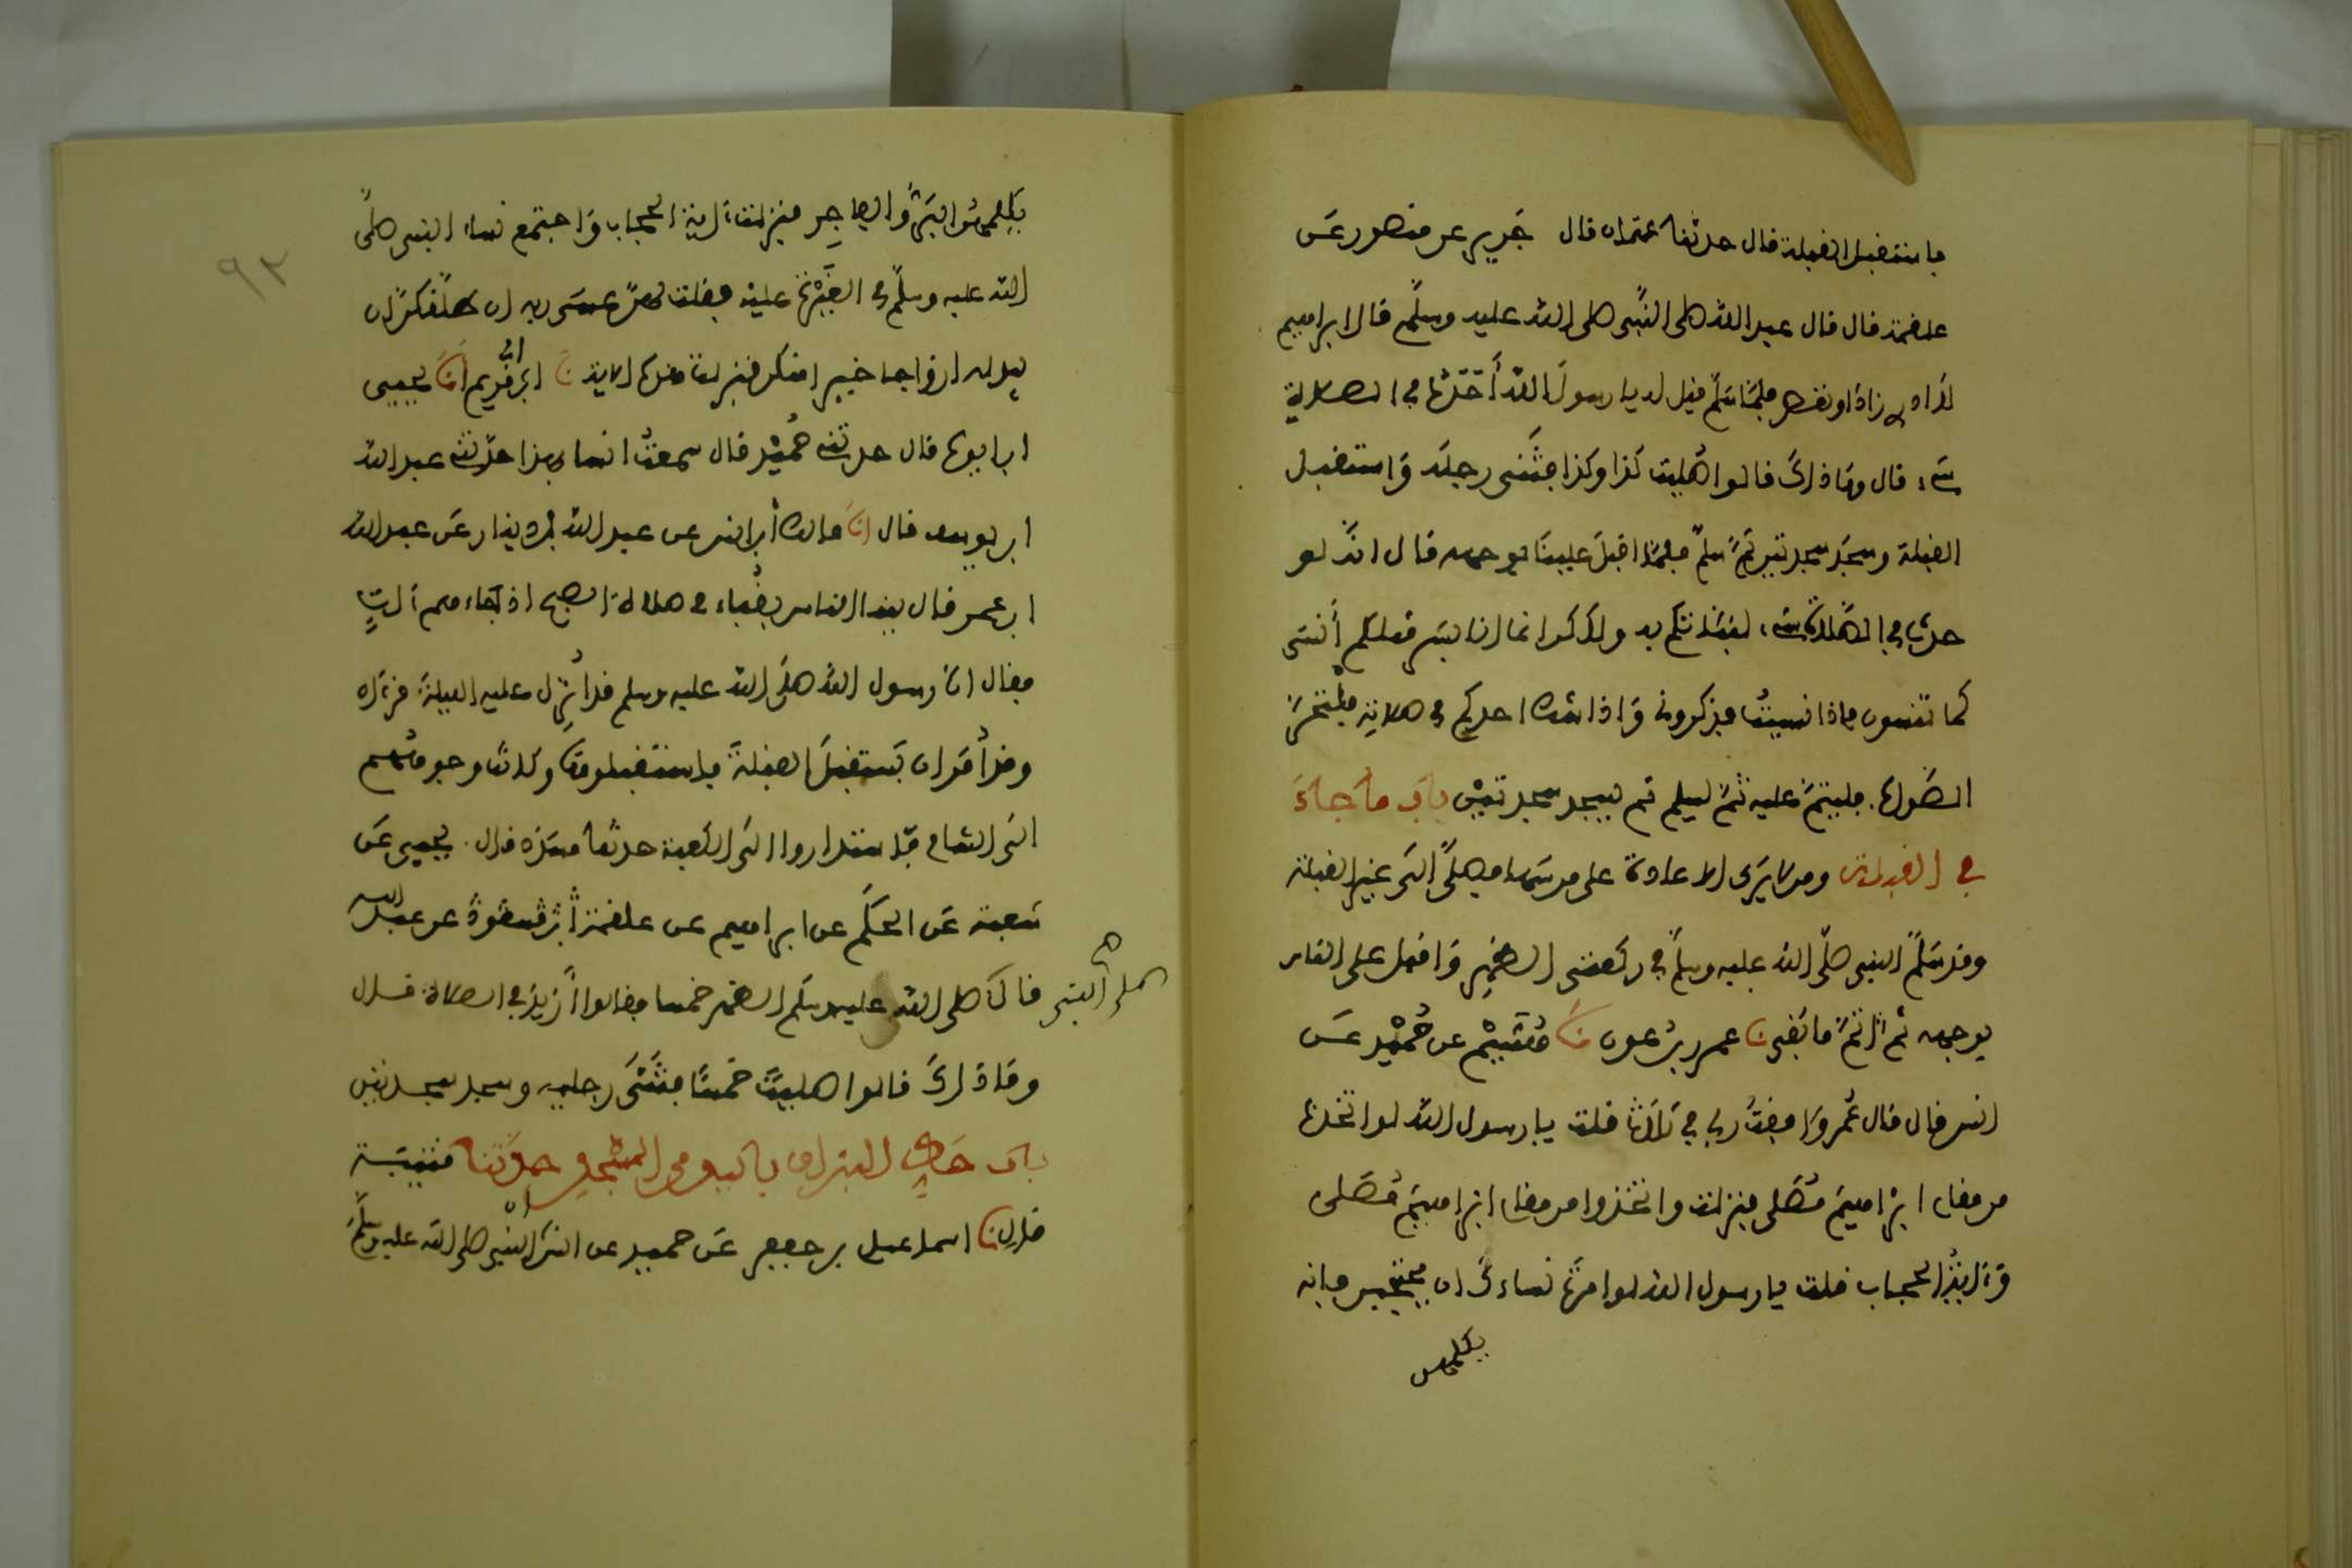 فاستقبل القبلة قال حدثنا عثمان قال جَرير عن منصور عَن
علقمة قال قال عبد الله صلى النَّبى صلى الله عليه وسلَّم قال ابراهيم
لا أدرى زادَ او نقص فلمّا سَلَّم قيل له يا رسولَ الله أَحَدَث في الصلاة
شىء قال وما ذاكَ قالوا صَليت كذا وكذا فثَنى رجله وَاستقبل
القبلة وسجَد سجدتين ثمَّ سلَّم فلمّا اقبلَ علينَا بوجهه قال انّه لو
حدث في الصَّلاة شىء لنبَّاتكم به ولكن انما انا بشر مثلكم أنسَى
كما تنسون فاذا نسيتُ فذكرونى وَاذا شك احدكم في صلاتِه فليتحرَّ
الصَّواب فليتمَّ عليه ثمَّ ليسلم ثم يسجد سجدتَيْن بابُ ما جاءَ
في القبلة ومن لا يَرَى الاعادة على من سَها فصلَّى الَى غير القبلة
وقد سَلَّم النبى صلّى الله عليه وسلَّم في ركعتى الظهرِ وَاقبل على الناس
بوجهه ثم اتمَّ ما بَقى نا عمرو بنُ عون نا هُشَيْم عن حُمَيْد عَن
انس قال قال عُمر وَافقتُ ربى في ثلاث قلت يا رسول الله لو اتخذنا
من مقام ابْراهيمَ مُصَلى فنزلت واتخذوا من مقام ابْراهيمَ مُصَلى
وَءايةُ الحجاب قلت يا رسول الله لو امرْتَ نساءكَ ان يحتجبن فانه
يكلمهن
يكلمهنَّ البَرُّ وَالفاجِر فنزلت ءاية الحجاب وَاجتمع نساء النبى صلَّى
الله عليه وسلَّم في الغَيْرة عليه فقلت لهنَّ عسَى ربه ان طلَّقكنَّ ان
يبدله ازواجا خيرا منكن فنزلت هذه الاية نا ابن أبى مريم انَا يحيى
ابن ايوب قال حدثنى حُمَيْد قال سمعتُ انسا بهذا حدّثنا عبد الله
ابن يوسف قال انَا مالك أبن انس عن عبد الله بن دينار عَن عبد الله
ابن عمر قال بينا الناس بقُباء في صلاة الصبح اذ جَاءهم آتٍ
فقال انّ رسول الله صلَّى الله عليه وسلم قد أُنزل عليه الليلةَ قرءان
وقد اُمَر ان يَستقبلَ القبلةَ فاستقبلوهَا وكانت وجوههُم
الَى الشام فاستداروا الَى الكعبة حدثنا مسَدد قال يحيى عَن
شعبة عَن الحكَم عن ابراهيم عن علقمة عن عبد الله
صلى النبى
قالَ صلى الله عليه وسلَّم الظهر خمسا فقالوا أَزيدَ في الصلاة قال
وَمَا ذاكَ قالوا صليتَ خمسًا فثَنَى رجليه وسجد سجدتين
بابُ حَكِّ البزاق باليد من المسْجد حدَّثنا قتيبَة
قال نا اسماعيل بن جعفر عَن حميد عن انس ان النَّبى صلى الله عليه وسلَّم
٩٢